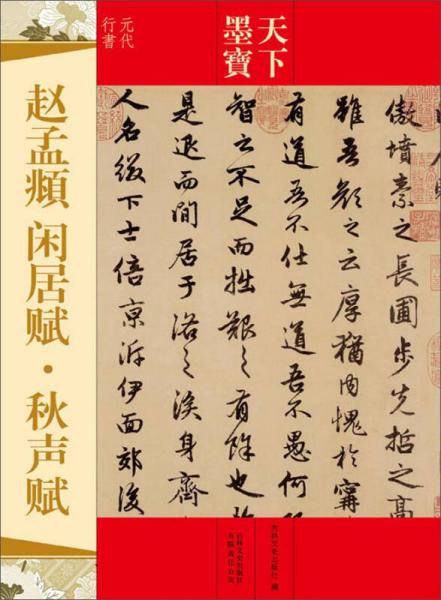 天下
墨寶
元代
行書
赵孟頫 闲居赋·秋声赋
傲墳素之長圃步先哲之高
雖吾顔之云厚猶内愧於甯
有道吾不仕無道吾不愚何
智之不足而拙艱之有餘也
是退而閒居于洛之涘身齊
人名綴下士倍京泝伊面郊後
吉林文史出版社 编
吉林文史出版社